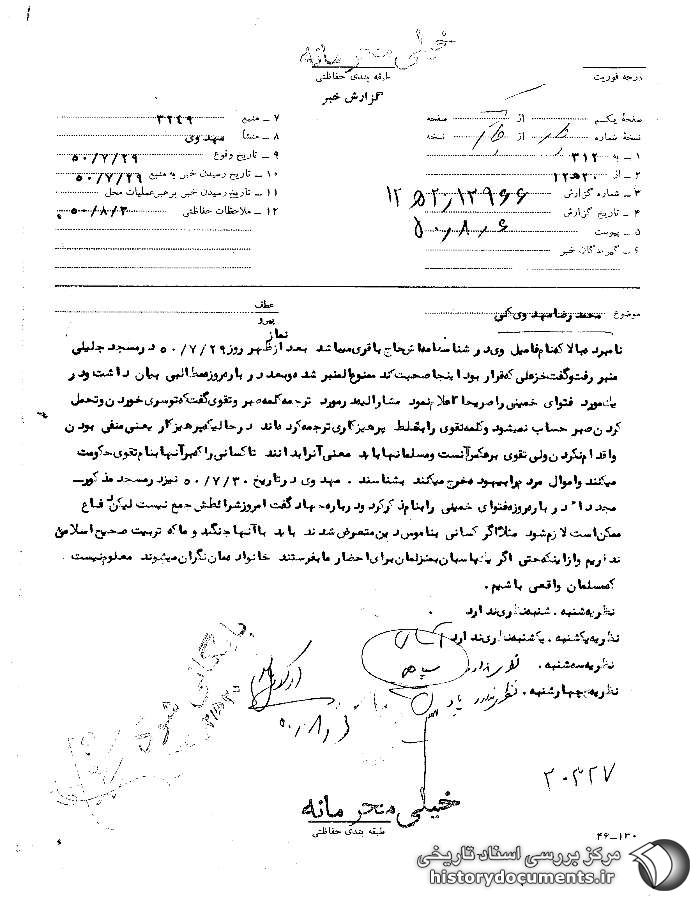 خیلی محرمانه
طبقه بندی حفاظتی
درجه فوریت
گزارش خبر
صفحهٔ یکم از صفحه
نسخهٔ شماره از نسخه
۱ ـ به ۳۱۲
۲ ـ از ۱۲ﻫ۲۰
۳ ـ شماره گزارش ۱۲ﻫ۲/۱۲۹۶۶
۴ ـ تاریخ گزارش ۵۰/۸/۶
۵ ـ پیوست
۶ ـ گیرندگان خبر
۷ ـ منبع ۳۲۴۹
۸ ـ منشأ مهدوی
۹ ـ تاریخ وقوع ۵۰/۷/۲۹
۱۰ ـ تاریخ رسیدن خبر به منبع ۵۰/۷/۲۹
۱۱ ـ تاریخ رسیدن خبر برهبر عملیات محل
۱۲ ـ ملاحظات حفاظتی ۵۰/۸/۲
موضوع محمدرضا مهدوی کنی
عطف
پیرو
نامبرده بالا که نام فامیل وی در شناسنامه اش حاج باقری میباشد بعد از نماز ظهر روز ۵۰/۷/۲۹ در مسجد جلیلی
منبر رفت و گفت خزعلی که قرار بود اینجا صحبت کند ممنوع المنبر شده و بعد درباره روزه مطالبی بیان داشت و در
یک مورد فتوای خمینی را صریحا اعلام نمود مشارالیه در مورد ترجمه کلمه صبر و تقوی گفت که توسری خوردن و تحمل
کردن صبر حساب نمیشود و کلمه تقوی را بغلط پرهیزکاری ترجمه کرده اند در حالیکه پرهیزکار یعنی منفی بودن
و اقدام نکردن ولی تقوی برعکس آنست و مسلمانها باید معنی آنرا بدانند تا کسانی را که بر آنها بنام تقوی حکومت
میکنند و اموال مردم را بیهوده خرج میکنند بشناسند . مهدوی در تاریخ ۵۰/۷/۳۰ نیز در مسجد مذکور ـ
مجددا درباره روزه فتوای خمینی را بنام ذکر کرد و درباره جهاد گفت امروز شرائطش جمع نیست لیکن دفاع
ممکن است لازم شود مثلا اگر کسانی بناموس دین متعرض شدند باید با آنها جنگید و ما که تربیت صحیح اسلامی
نداریم و از اینکه حتی اگر یک پاسبان بمنزلمان برای احضار ما بفرستند خانواده مان نگران میشوند معلوم نیست
که مسلمان واقعی باشیم .
نظریه شنبه . شنبه نظری ندارد .
نظریه یکشنبه . یکشنبه نظری ندارد
نظریه سه شنبه . نظری ندارد
نظریه چهارشنبه . نظری ندارد
۵۰/۸/
بایگانی شود
۲۰۳۲۷
خیلی محرمانه
طبقه بندی حفاظتی
۴۶ـ۱۳۰
مرکز بررسی اسناد تاریخی
historydocuments.ir